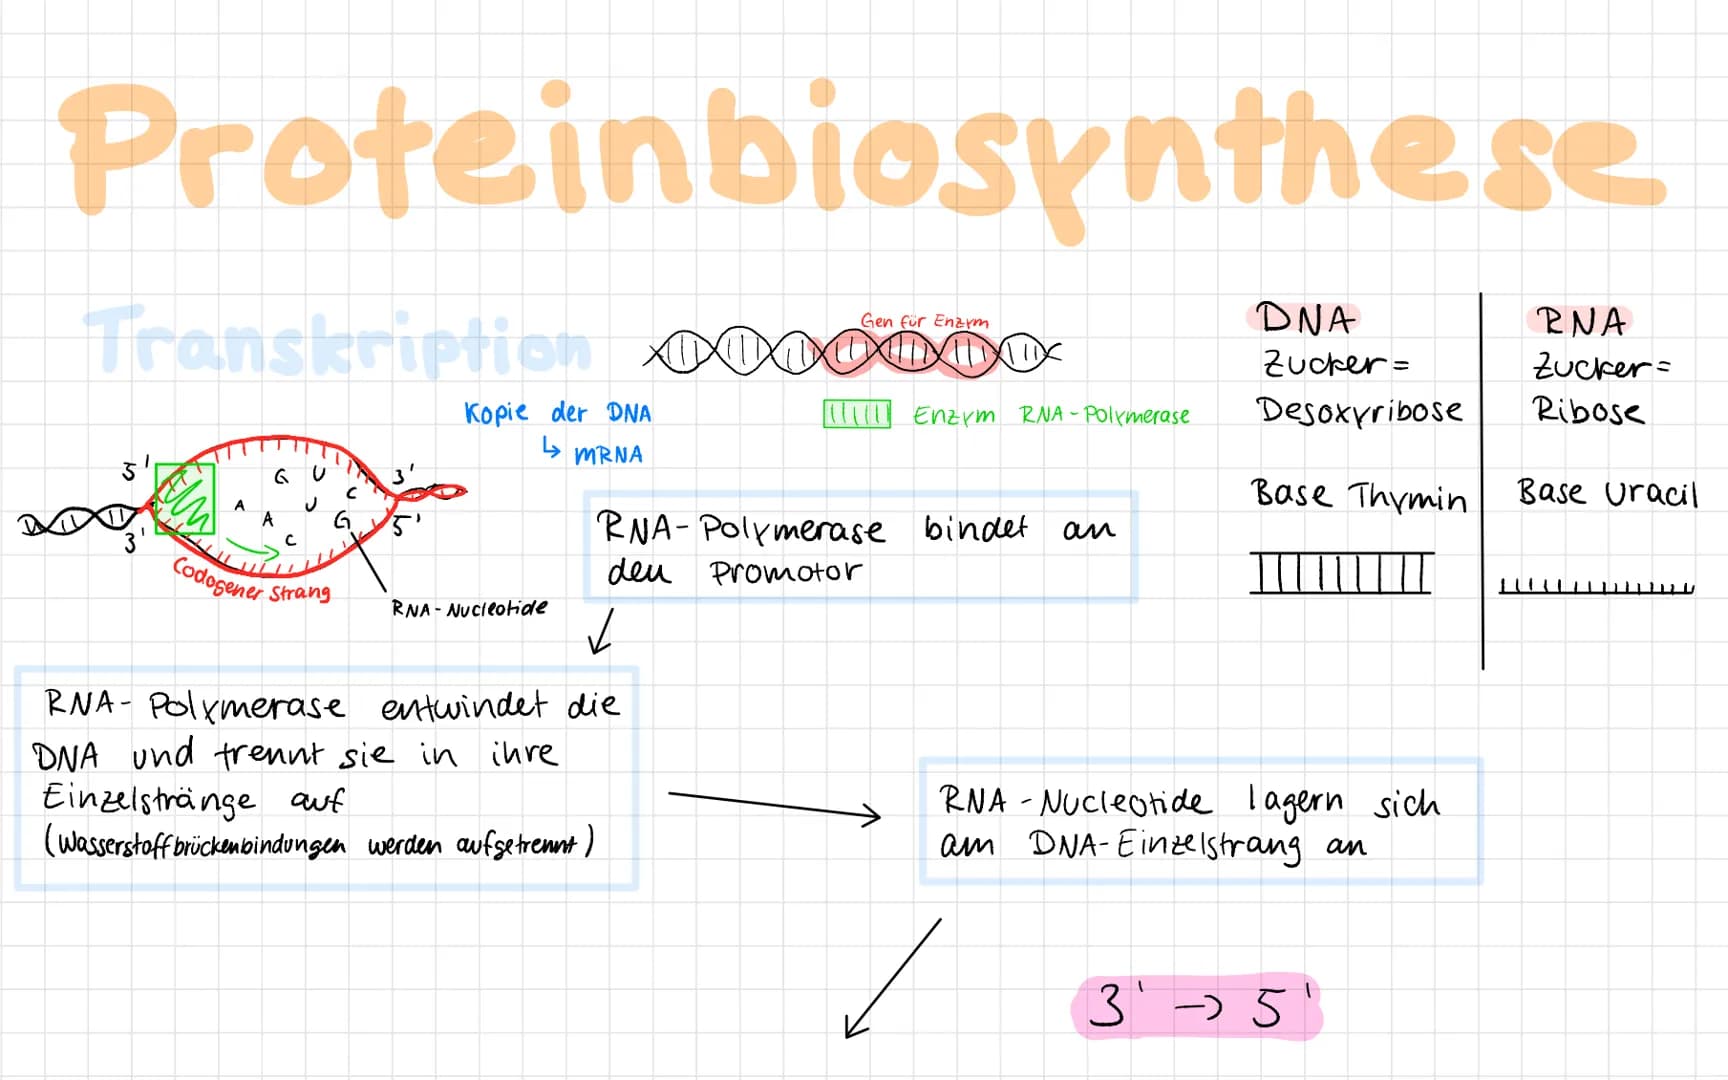 Proteinbiosynthese
Transkription
Gen für Enzym
Enzym RNA-Polymerase
Kopie der DNA
↳ mRNA
DNA
Zucker =
Desoxyribose
Base Thymin
RNA
Zucker =
Ribose
Base Uracil
5'
3'
3'
5'
G U
C
A
U
A
G
C
Codogener Strang
RNA-Nucleotide
RNA-Polymerase bindet an
den Promotor
RNA-Polymerase entwindet die
DNA und trennt sie in ihre
Einzelstränge auf
(Wasserstoffbrückenbindungen werden aufgetrennt)
RNA-Nucleotide lagern sich
am DNA-Einzelstrang an
3' → 5'